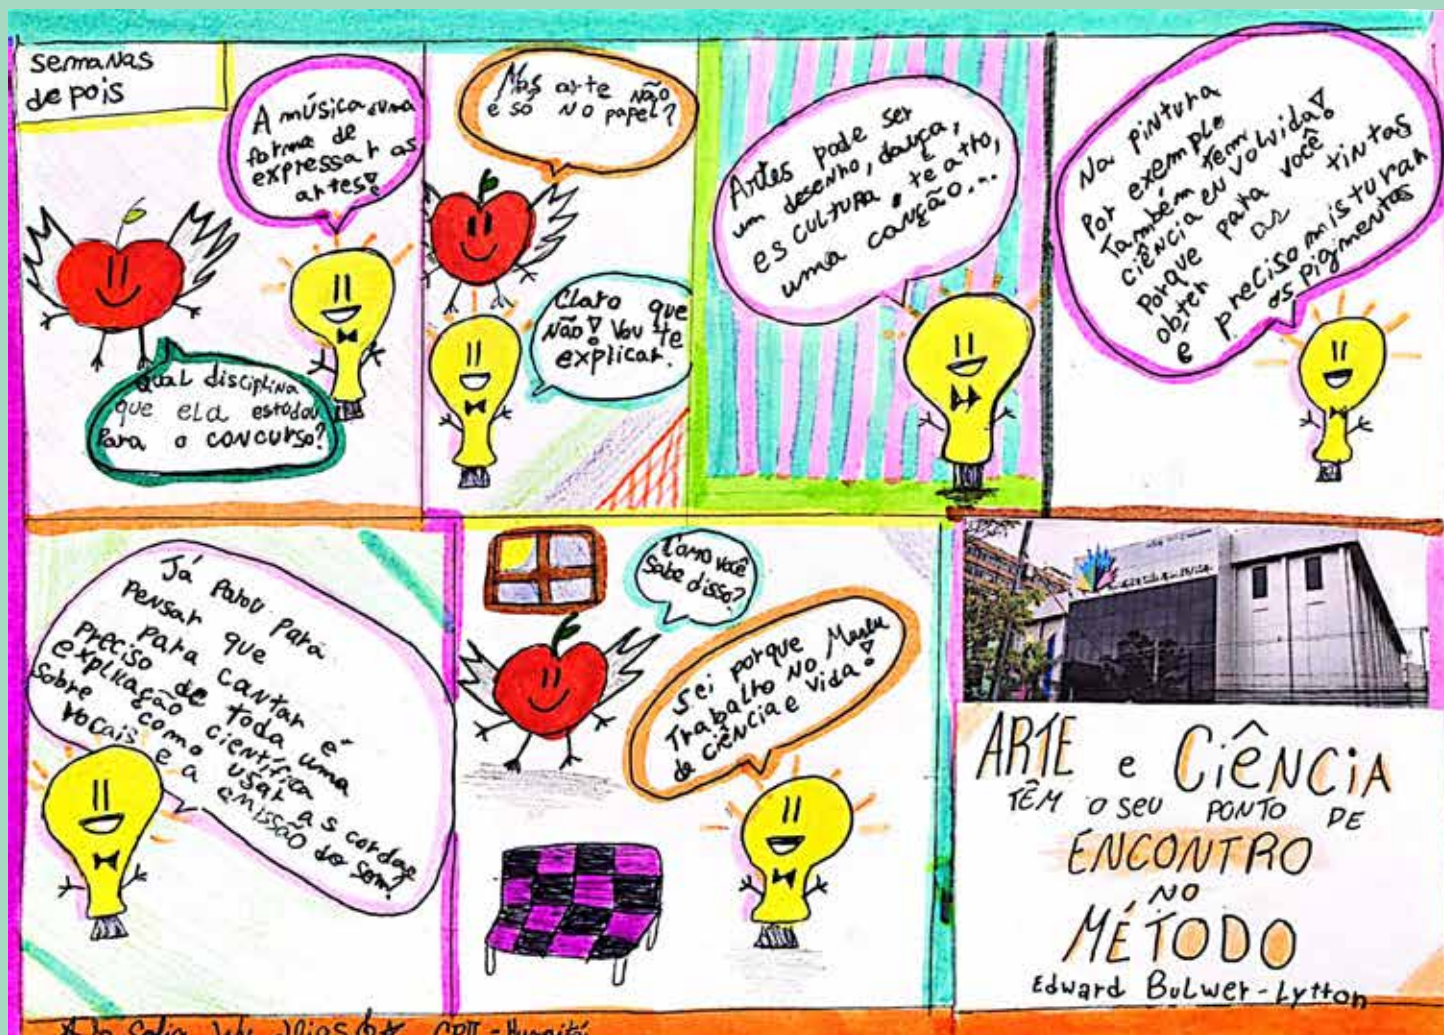 semanas
depois
A música é uma
forma de
expressar as
artes!
Qual disciplina
que ela estudou
para o concurso?
Mas arte não
é só no papel?
Claro que
não! Vou te
explicar.
Artes pode ser
um desenho, dança,
escultura, teatro,
uma canção...
Na pintura
Por exemplo
Também tem
ciência envolvida!
Porque para você
obter as tintas
é preciso misturar
os pigimentos
Já parou para
pensar que
para cantar é
preciso de toda uma
explicação científica
sobre como usar as cordas
vocais e a emissão do som?
Como você
sabe disso?
Sei porque
Trabalho no Museu
da ciência e vida!
ARTE e CIÊNCIA
TÊM O SEU PONTO DE
ENCONTRO
NO
MÉTODO
Edward Bulwer-Lytton
Sofia CPII - Humaitá